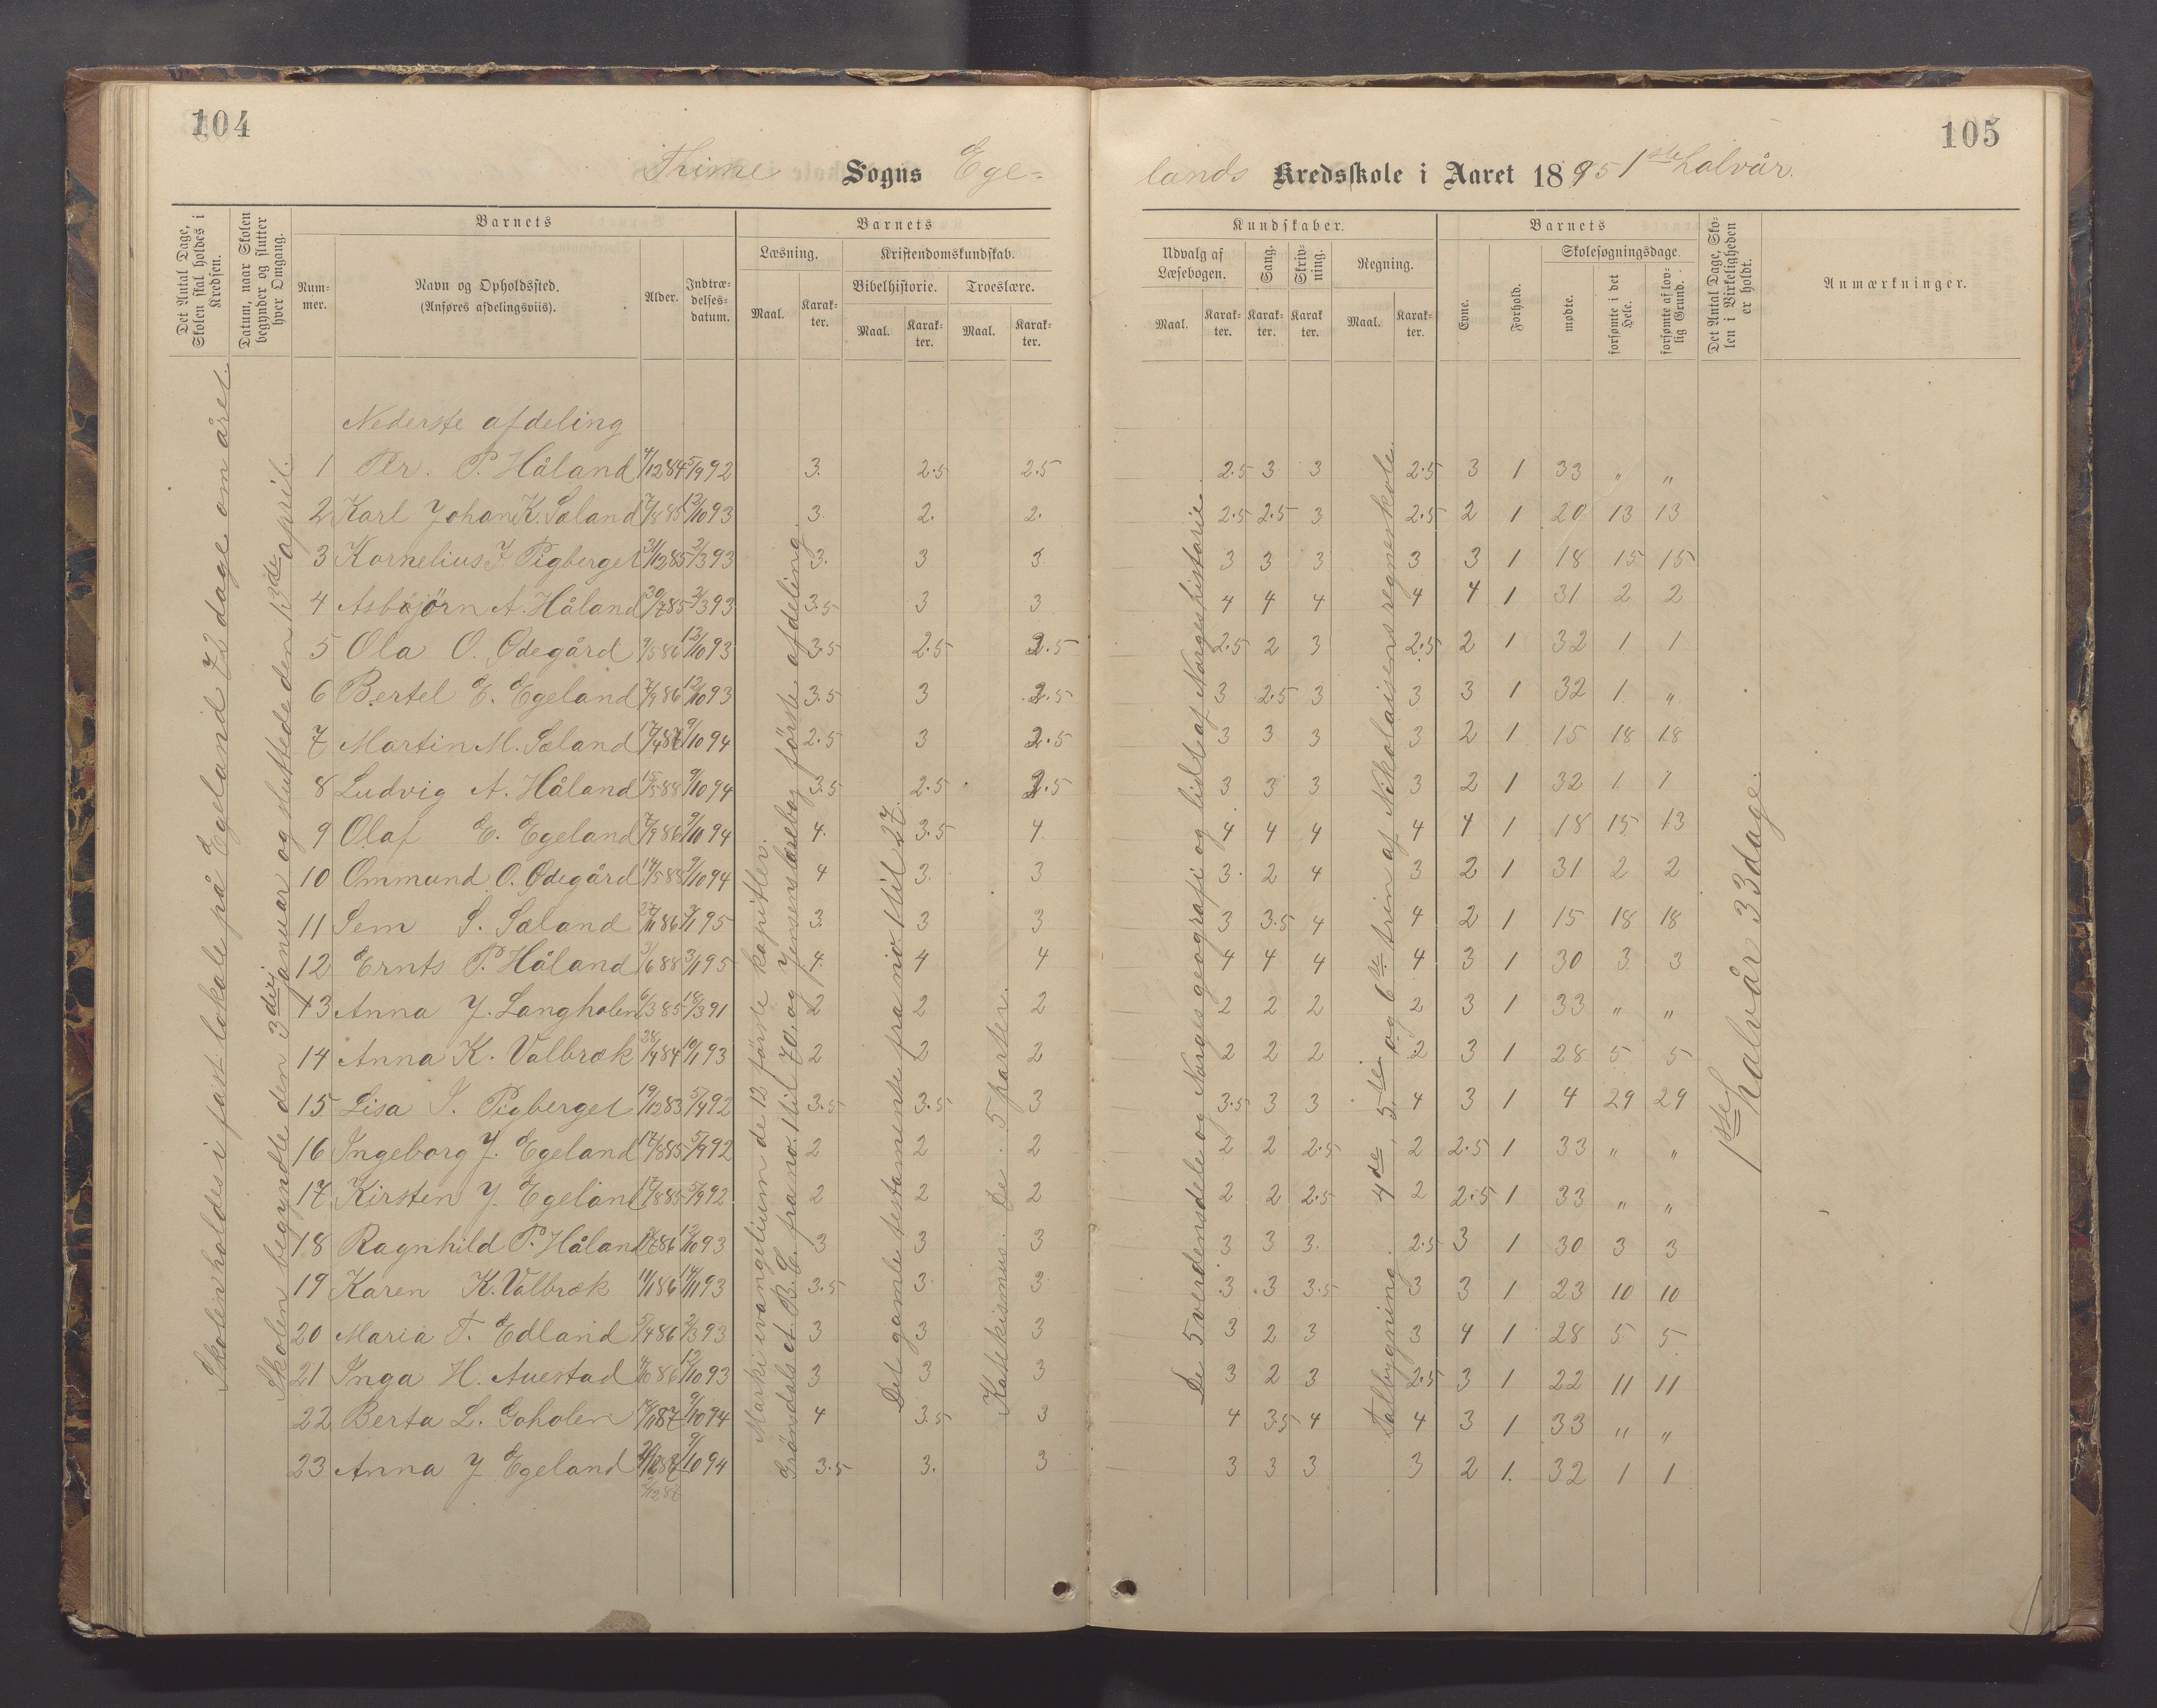 104
105
Thime Sogns Ege-
lands Kredsskole i Aaret 1895 1ste halvår.
Det Antal Dage, Skolen skal holdes i Kredsen.
Datum, naar Skolen begynder og slutter hver Omgang.
Barnets
Nummer.
Navn og Opholdssted. (Anføres afdelingsviis).
Alder.
Indtrædelsesdatum.
Barnets
Læsning.
Maal.
Karakter.
Kristendomskundskab.
Bibelhistorie.
Maal.
Karakter.
Troeslære.
Maal.
Karakter.
Kundskaber.
Udvalg af Læsebogen.
Maal.
Karakter.
Sang.
Karakter.
Skrivning.
Karakter.
Regning.
Maal.
Karakter.
Barnets
Evne.
Forhold.
Skolesøgningsdage.
mødte.
forsømte i det Hele.
forsømte af lovlig Grund.
Det Antal Dage, Skolen i Virkeligheden er holdt.
Anmærkninger.
Skolen holdes i fast lokale på Egeland 72 dage om året.
Skolen begyndte den 3die januar og sluttede den 13de april.
Marki evangelium de 12 förste kapitler.
Gröndals et B. C. fra no. 1 til 70. og Jensens læsebog förste afdeling
Det gamle testamente fra no 1 til 27.
Katekismus. De 5 parter.
De 5 verdensdele og Norges geografi og lidt af Norges historie.
Talbygning. 4de, 5te og 6te trin af Nikolaisens regneskole.
1ste halvår 33 dage.
Nederste afdeling
1 Per. P. Håland 4/12 84 5/9 92 3. 2.5 2.5 2.5 3 3 2.5 3 1 33 " "
2 Karl Johan K. Sæland 17/8 85 12/10 93 3. 2. 2. 2.5 2.5 3 2.5 2 1 20 13 13
3 Kornelius J Pigberget 31/12 85 2/3 93 3. 3 3. 3 3 3 3 3 1 18 15 15
4 Asbjörn A. Håland 30/7 85 2/3 93 3.5 3 3 4 4 4 4 4 1 31 2 2
5 Ola O. Ødegård 9/5 86 12/10 93 3.5 2.5 2.5 2.5 2 3 2.5 2 1 32 1 1
6 Bertel E. Egeland 7/9 86 12/10 93 3.5 3 2.5 3 2.5 3 3 3 1 32 1 "
7 Martin M. Sæland 17/4 87 9/10 94 2.5 3 2.5 3 3 3 3 2 1 15 18 18
8 Ludvig A. Håland 15/5 88 9/10 94 3.5 2.5 2.5 3 3 3 3 2 1 32 1 1
9 Olaf E. Egeland 7/9 86 9/10 94 4. 3.5 4. 4 4 4 4 4 1 18 15 13
10 Ommund O. Ødegård 14/5 88 9/10 94 4 3. 3 3. 2 4 3 2 1 31 2 2
11 Sem S. Sæland 27/11 86 3/1 95 3. 3 3 3 3.5 4 4 2 1 15 18 18
12 Ernts P. Håland 3/6 88 3/1 95 4. 4 4 4 4 4 4 3 1 30 3 3
13 Anna J. Langholen 6/3 85 18/3 91 2 2 2 2 2 2 2 3 1 33 " "
14 Anna K. Valbræk 28/4 84 10/1 93 2 2 2 2 2 2 2 3 1 28 5 5
15 Lisa J. Pigberget 19/12 83 5/4 92 3.5 3.5 3 3.5 3 3 4 3 1 4 29 29
16 Ingeborg J. Egeland 17/8 85 5/9 92 2 2 2 2 2 2.5 2 2.5 1 33 " "
17 Kirsten J Egeland 17/8 85 5/9 92 2 2 2 2 2 2.5 2 2.5 1 33 " "
18 Ragnhild P. Håland 86 12/10 93 3 3 3 3 3 3. 2.5 3 1 30 3 3
19 Karen K. Valbræk 86 93 3.5 3 3 3 3 3.5 3 3 1 23 10 10
20 Maria T. Edland 5/4 86 2/3 93 3 3 3 3 2 3 3 4 1 28 5 5
21 Inga H. Auestad 86 12/10 93 3 3 3 3 2 3 2.5 3 1 22 11 11
22 Berta L. Goholen 87 9/10 94 4 3.5 3 4 3.5 4 4 3 1 33 " "
23 Anna J Egeland 9/10 94 3.5 3. 3 3 3 3 3 2 1. 32 1 1
2/12 87